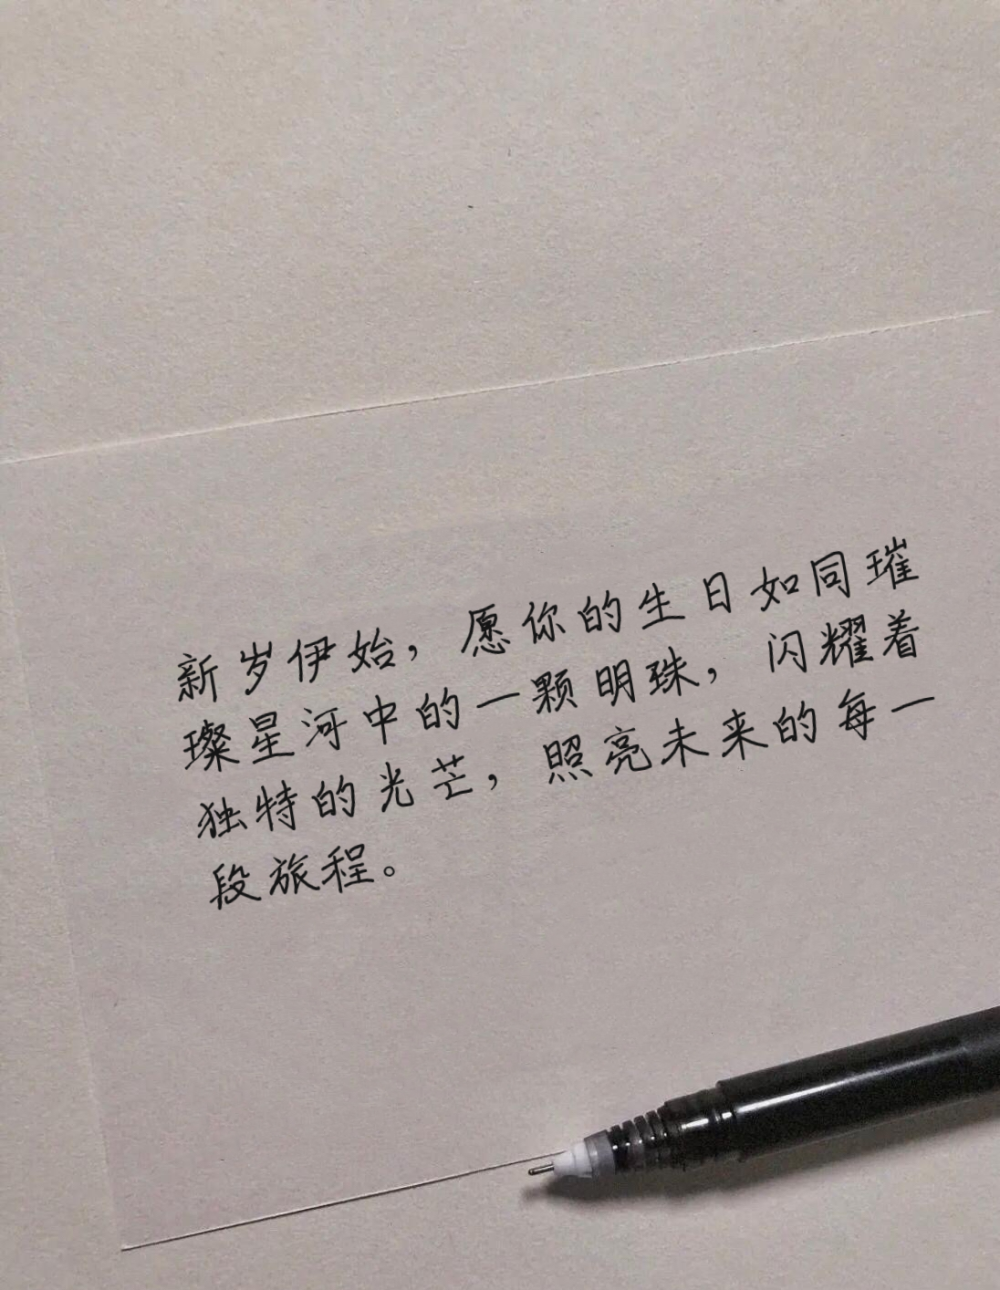 新岁伊始，愿你的生日如同璀
璨星河中的一颗明珠，闪耀着
独特的光芒，照亮未来的每一
段旅程。